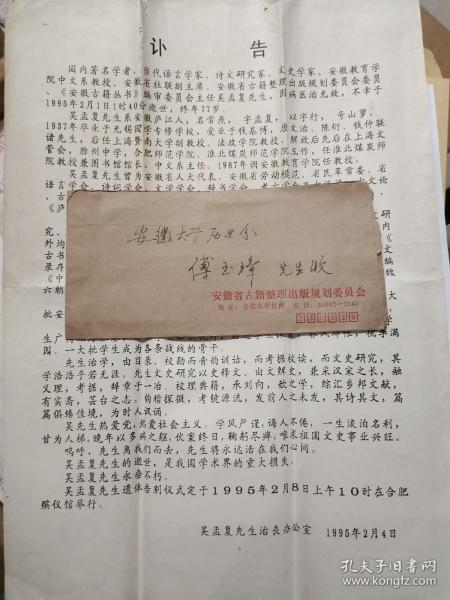 讣 告
国内著名学者、当代语言学家、诗文研究家、文史学家、安徽教育学
院中文系教授、安徽省社联副主席、安徽省古籍整理出版规划委员会委员
、《安徽古籍丛书》编审委员会主任吴孟复先生,因病医治无效,不幸于
1995年2月1日1时40分逝世,终年77岁。
吴孟复先生系安徽庐江人,名常焘,字孟复,以字行,号山萝。
1937年毕业于无锡国学专修学校,受业于钱基博、唐文治、陈衍、钱仲联
诸先生,后任上海暨南大学副教授、法政学院教授。解放后先后在上海文
管会、宿州中学、合肥师范学院、淮北煤炭师范学院工作,任淮北煤炭师
院教授兼图书馆馆长、中文系主任。1987年调安徽教育学院任教授。
吴孟复先生曾为安徽省人大代表、安徽省劳动模范、省民革常委、省
语
《
究
外
古
中
六
生
安徽大学历史系
傅玉璋 先生收
安徽省古籍整理出版规划委员会
地址:安徽大学校内
230039
研
内
《
文
编
大
学
批
一大批学生成为各条战线的骨干。
先生治学,由目录、校勘而音韵训诂,而考据校读,而文史研究,其
学浩浩乎若无涯。先生文史研究以史释文、由文解史,兼采汉宋之长,融
义理、考据、辞章于一冶。校理典籍,承刘向、歆之学,综汇乡邦文献,
有实斋、芸台之志。钩稽探微,考镜源流,发前人之未发,其诗其文,篇
篇俱臻佳境,为时人讽诵。
吴先生热爱党,热爱社会主义。学风严谨,诲人不倦,一生淡泊名利,
甘为人梯,晚年以多病之躯,伏案终日,鞠躬尽瘁,唯求祖国文史事业兴旺。
呜呼,先生离我们而去,先生将永远活在我们心间。
吴孟复先生的逝世,是我国学术界的重大损失。
吴孟复先生永垂不朽。
吴孟复先生遗体告别仪式定于1995年2月8日上午10时在合肥
殡仪馆举行。
吴孟复先生治丧办公室 1995年2月4日
孔夫子旧书网